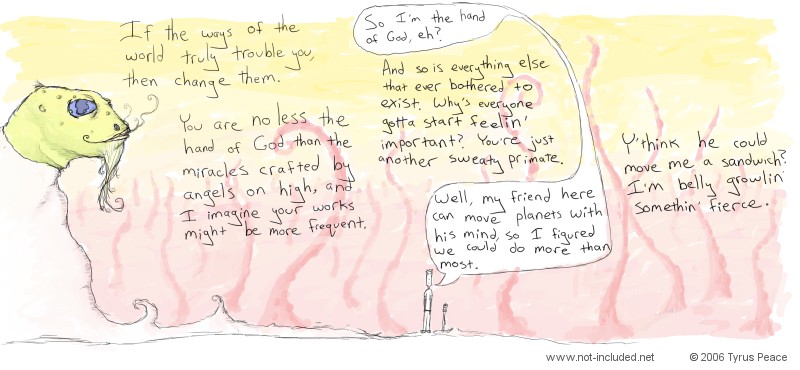 If the ways of the
world truly trouble you,
then change them.
You are no less the
hand of God than the
miracles crafted by
angels on high, and
I imagine your works
might be more frequent.
So I'm the hand
of God, eh?
And so is everything else
that ever bothered to
exist. Why's everyone
gotta start feelin'
important? You're just
another sweaty primate.
Well, my friend here
can move planets with
his mind, so I figured
we could do more than
most.
Y'think he could
move me a sandwich?
I'm belly growlin'
somethin' fierce.
www.not-included.net
© 2006 Tyrus Peace